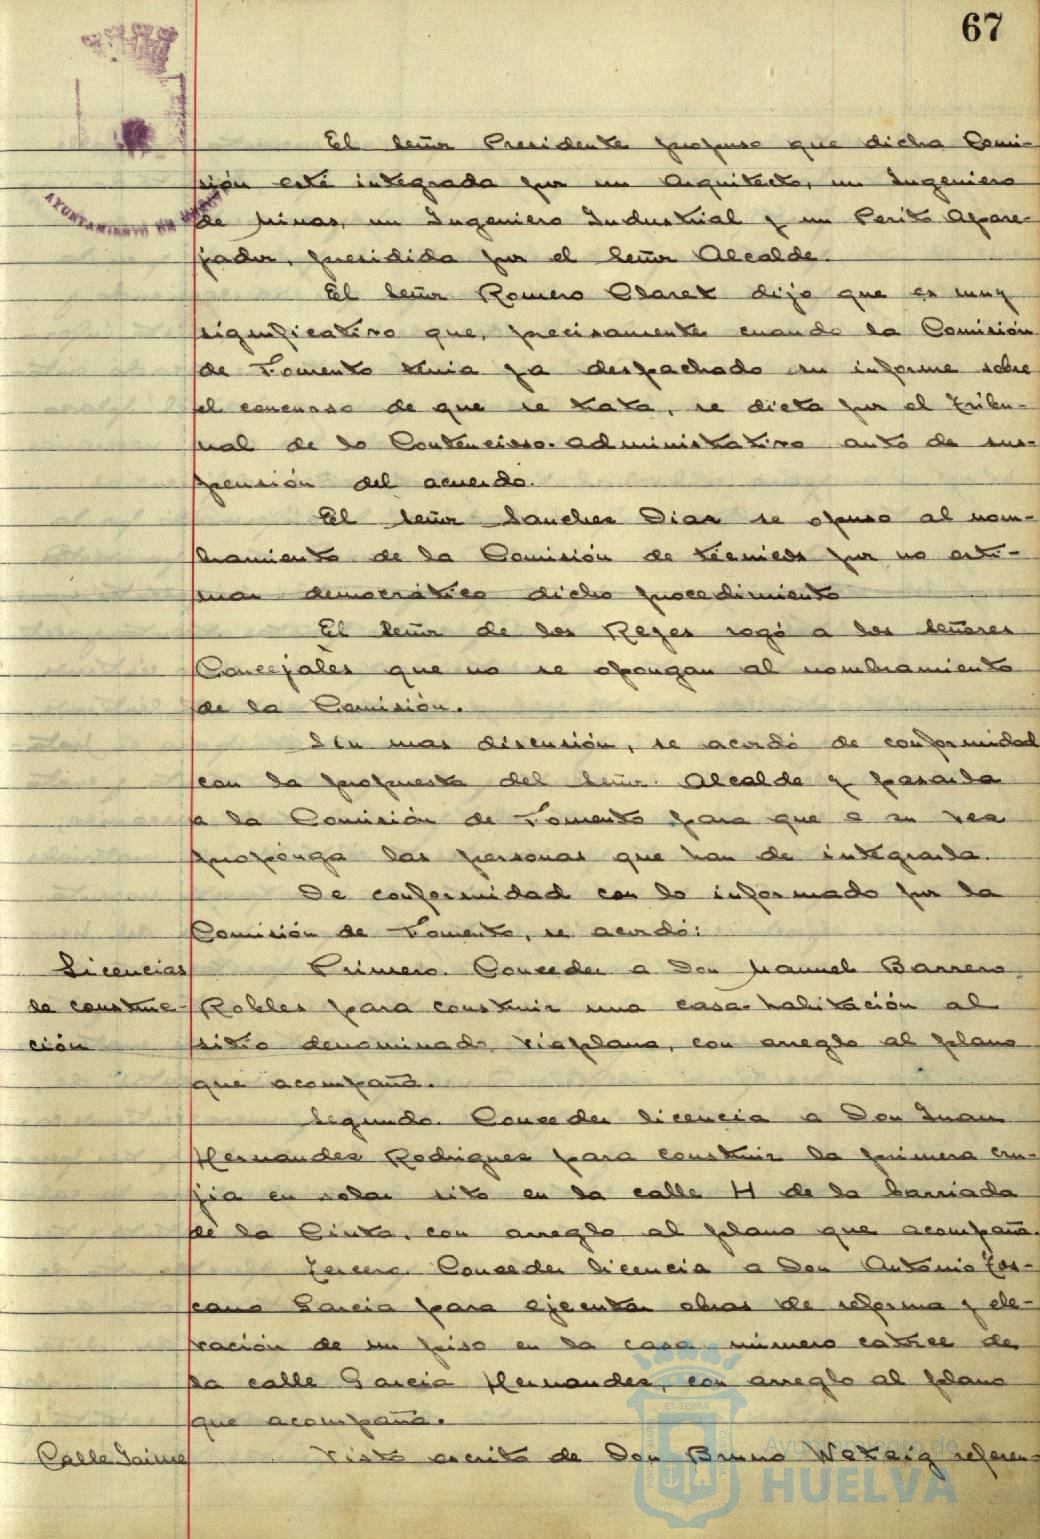 67
AYUNTAMIENTO DE
El señor Presidente propuso que dicha Comi-
sión esté integrada por un Arquitecto, un Ingeniero
de Minas, un Ingeniero Industrial y un Perito Apare-
jador, presidida por el señor Alcalde.
El señor Romero Claret dijo que es muy
significativo que, precisamente cuando la Comisión
de Fomento tenia ya despachado su informe sobre
el concurso de que se trata, se dicta por el Tribu-
nal de lo Contencioso-administrativo auto de sus-
pensión del acuerdo.
El señor Sanchez Diaz se opuso al nom-
bramiento de la Comisión de técnicos por no esti-
mar democrático dicho procedimiento
El señor de los Reyes rogó a los señores
Concejales que no se opongan al nombramiento
de la Comisión.
Sin mas discusión, se acordó de conformidad
con la propuesta del señor Alcalde y pasarla
a la Comisión de Fomento para que a su vez
proponga las personas que han de integrarla.
De conformidad con lo informado por la
Comisión de Fomento, se acordó:
Licencias
de construc-
ción
Primero. Conceder a Don Manuel Barrero
Robles para construir una casa-habitación al
sitio denominado Viaplana, con arreglo al plano
que acompaña.
Segundo. Conceder licencia a Don Juan
Hernandez Rodriguez para construir la primera cru-
jia en solar sito en la calle H de la barriada
de la Cinta, con arreglo al plano que acompaña.
Tercero. Conceder licencia a Don Antonio Tos-
cano Garcia para ejecutar obras de reforma y ele-
vación de un piso en la casa número catorce de
la calle Garcia Hernandez, con arreglo al plano
que acompaña.
Calle Jaime
Visto escrito de Don Bruno Wetzig referen-
Ayuntamiento de
HUELVA